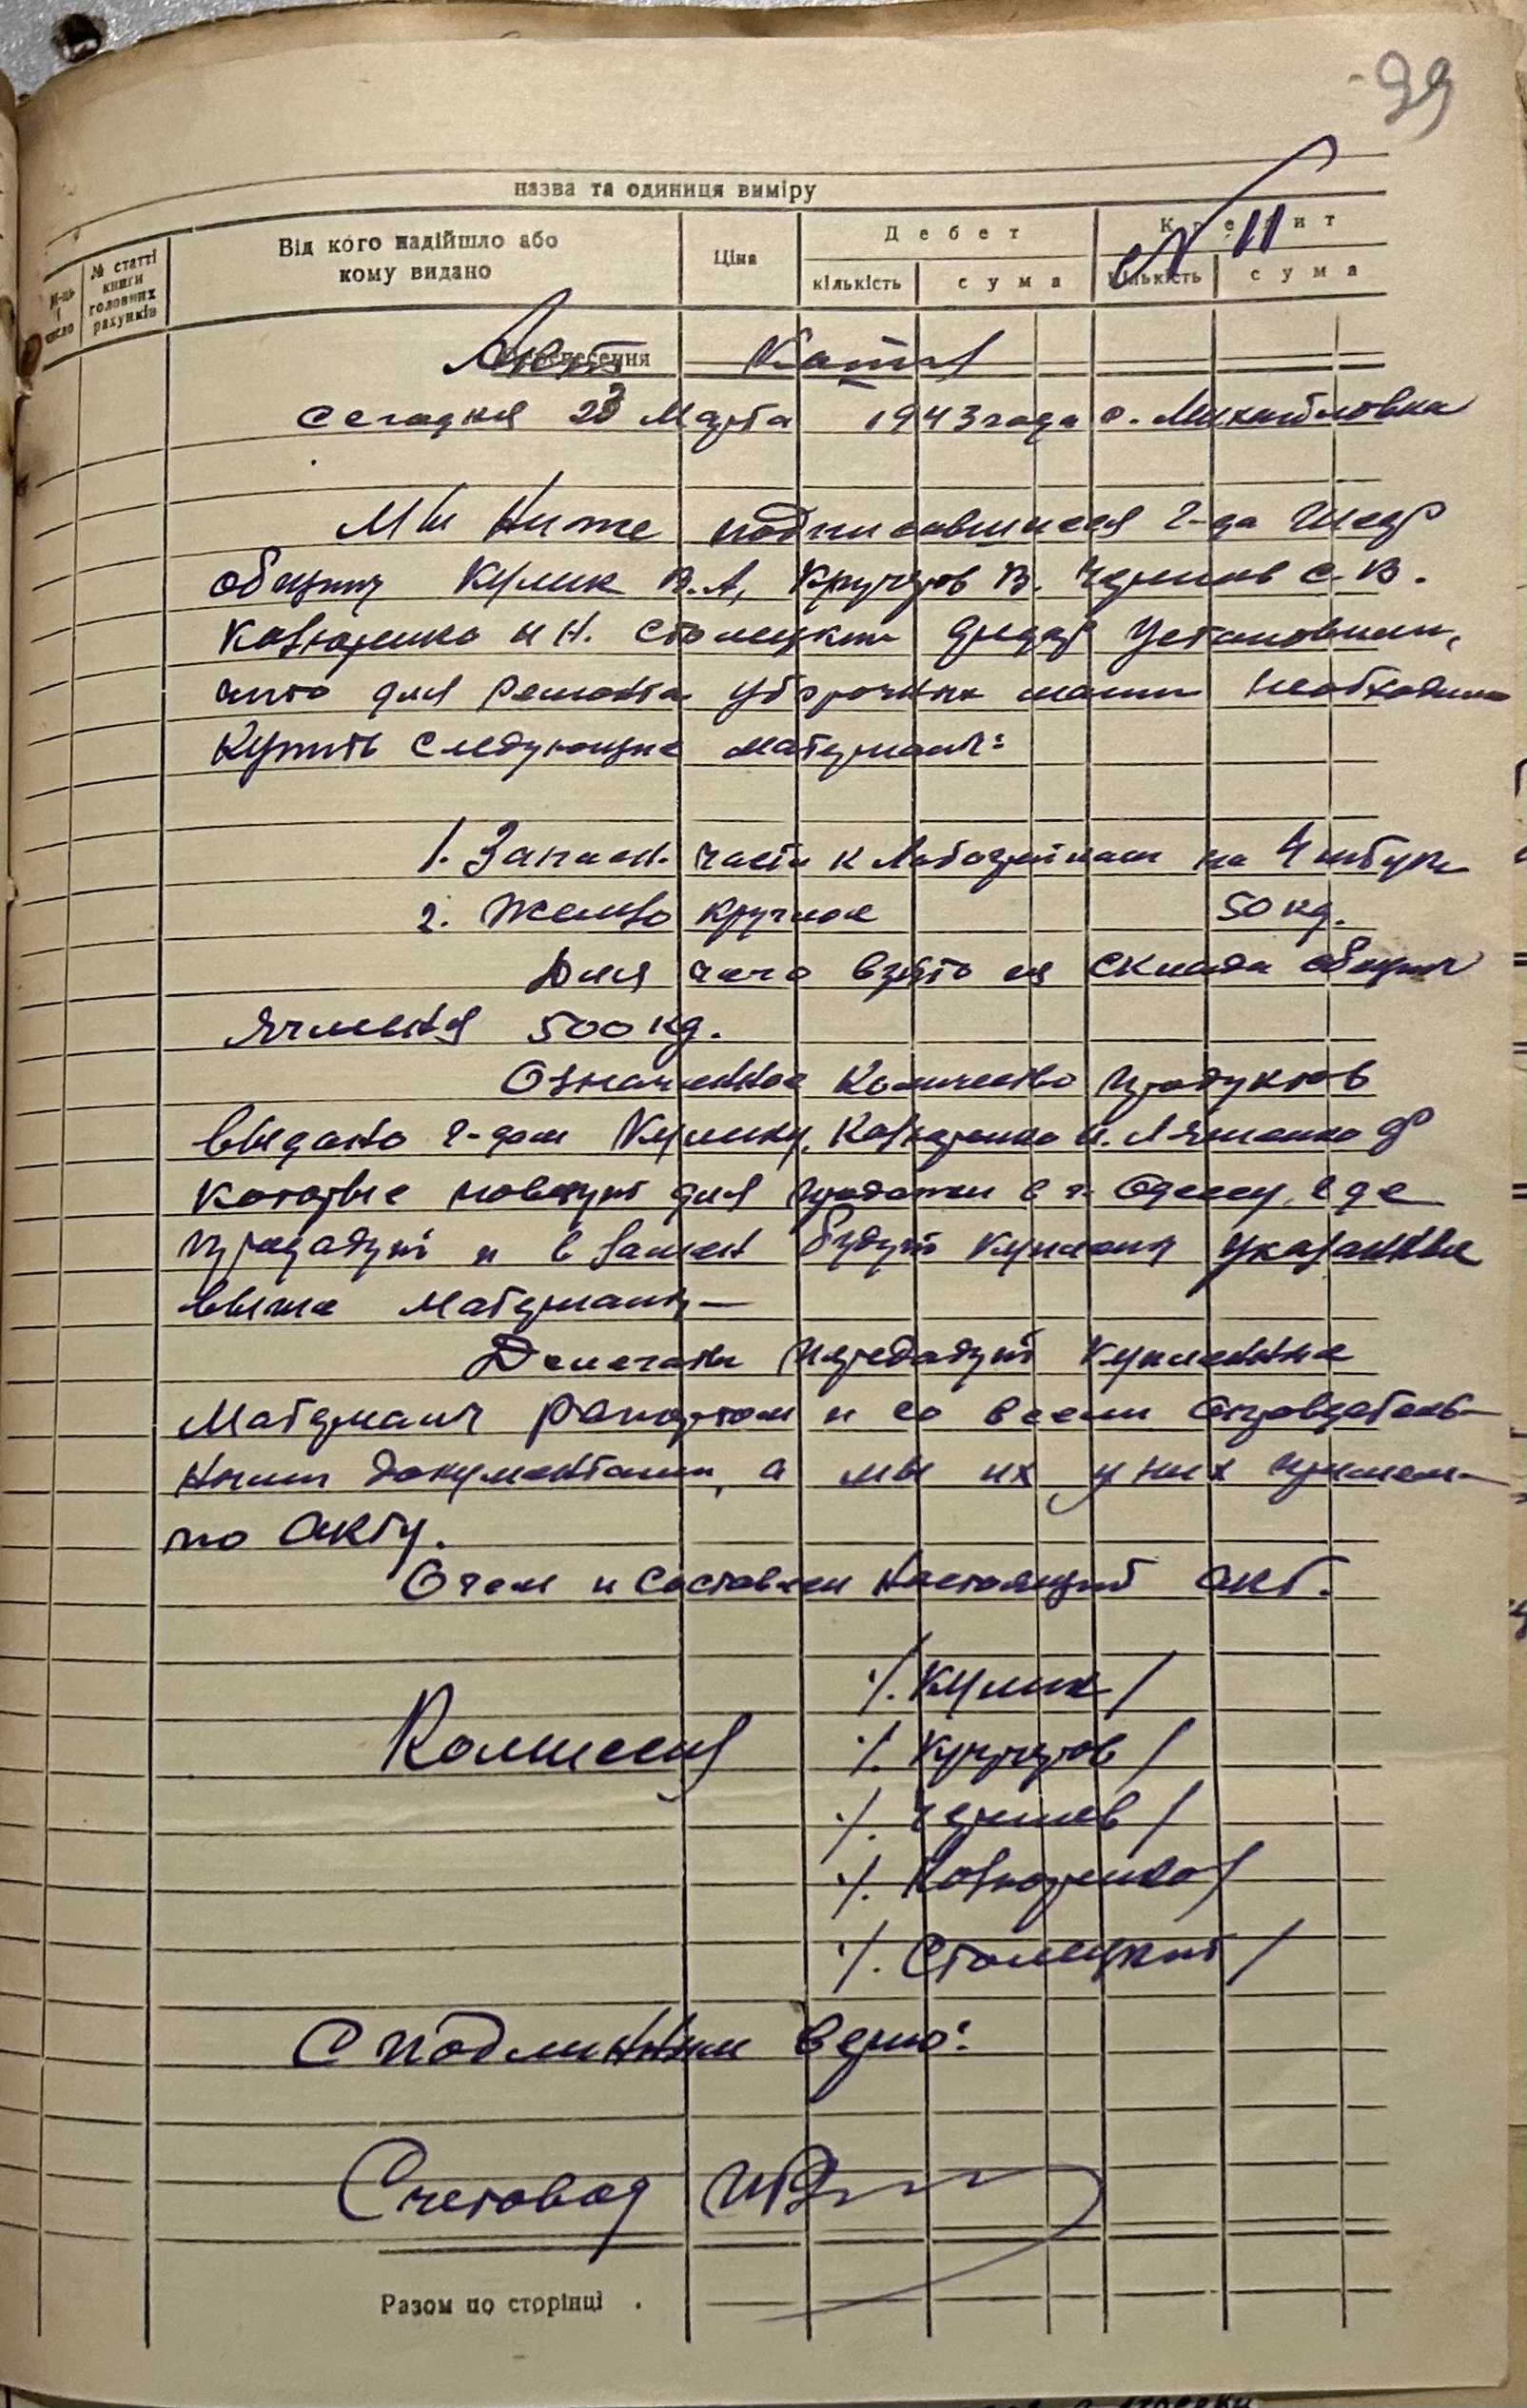 99
назва та одиниця виміру
М-ць і число
№ статті книги головних рахунків
Від кого надійшло або кому видано
Ціна
Дебет
Кредит
кількість
сума
кількість
сума
№ 11
Перенесення
Акт Копия
Сегодня 23 Марта 1943 года с. Михайловка
Мы Ниже подписавшиеся г-да Шеф
общины Кулик В.А, Кручеров В. Чернов С. В.
Ковторенко И Н. Столецкий Установили,
что для ремонта уборочных машин необходимо
Купить следующие материалы:
1. Запасн. части к Лобогрейкам на 4 штуки
2. Железо круглое 50 кг.
Для чего взято из склада общины
Ячменя 500 кг.
Означенное Количество продуктов
выдано г-дам Кулику, и. Ляшенко Ф
которые повезут для продажи в г. Одессу, где
продадут и в замен будут куплены указанные
выше Материалы —
Делегаты передадут купленные
Материалы рапортом и со всеми оправдатель-
ными документами, а мы их у них примем
по акту.
О чем и составлен настоящий акт.
/. Кулик /
Комиссия /. Кручеров /
/. Чернов /
/. Ковторенко /
/. Столецкий /
С подлинным верно:
Счетовод
Разом по сторінці .